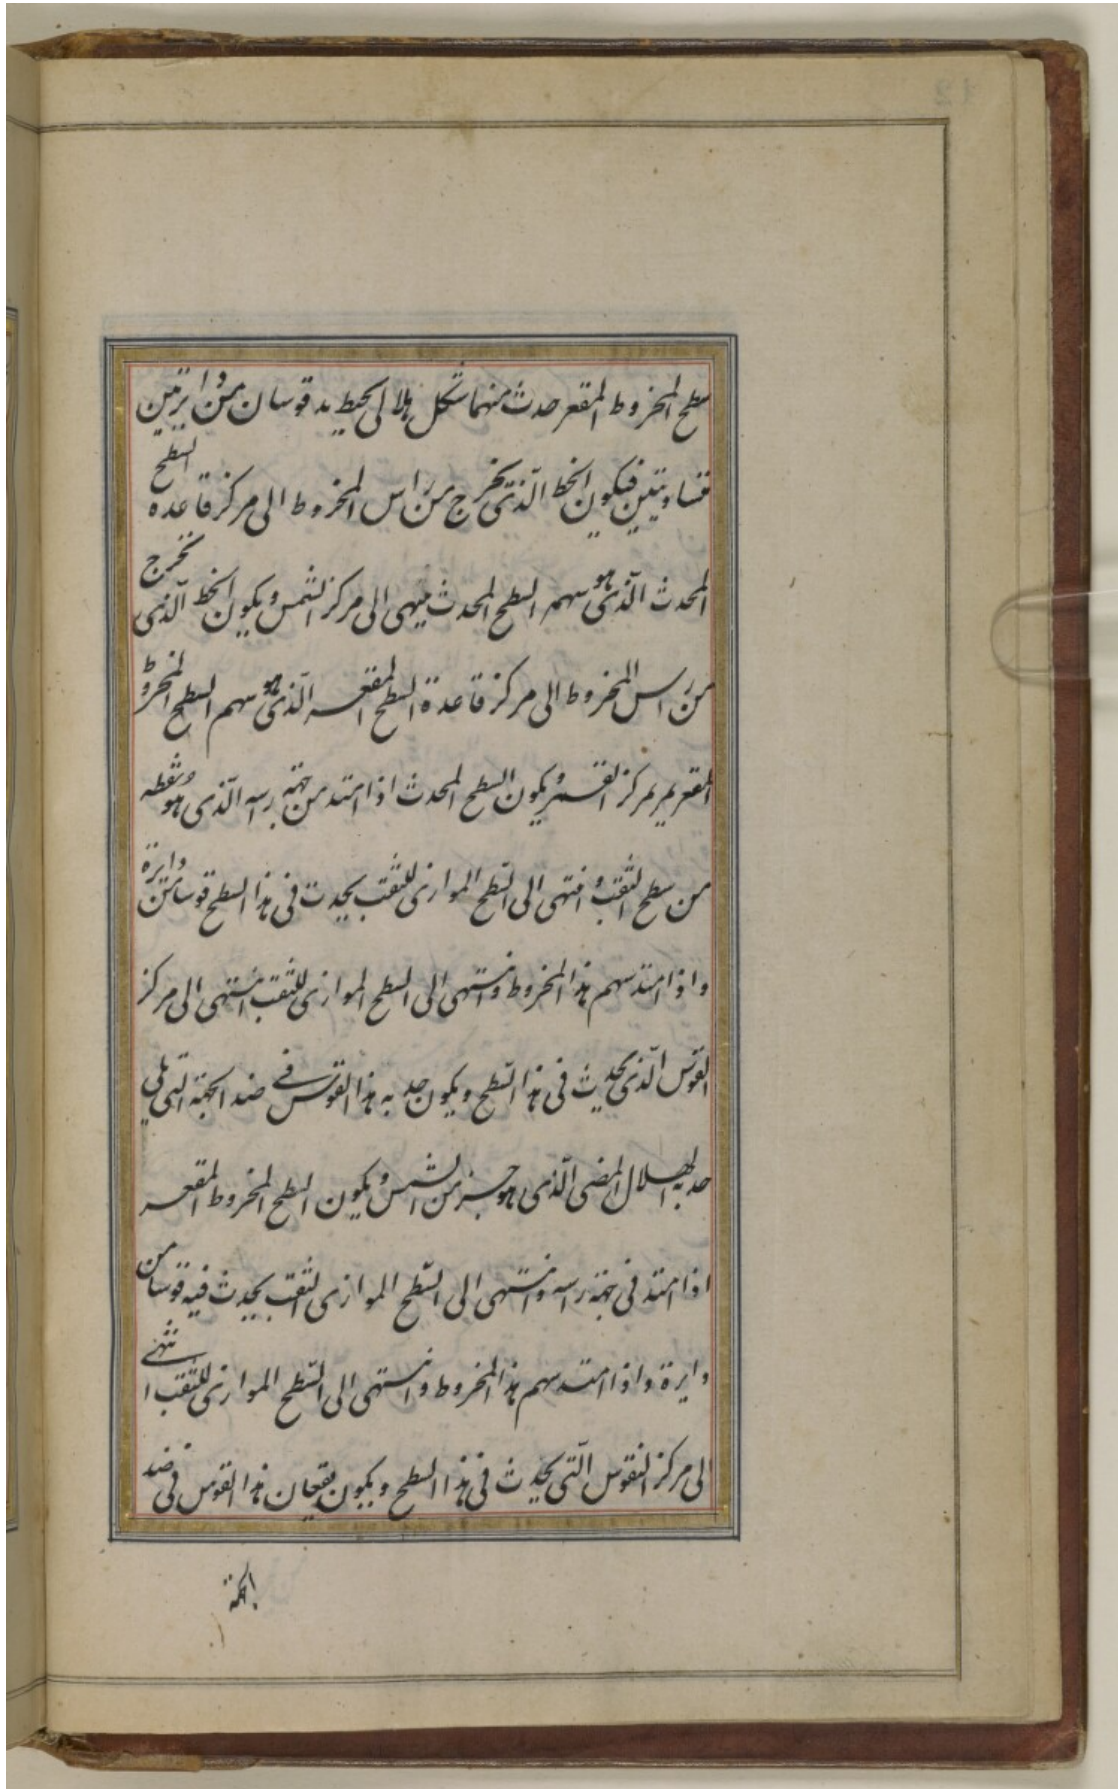 سطح المخروط المقعر حدث منهما شكل هلالى يحيط به قوسان من دايرتين
متساويتين فيكون الخط الّذى يخرج من راس المخروط الى مركز قاعده السطح
المحدث الّذى هو سهم السطح المحدث ينهى الى مركز الشمس ويكون الخط الّذى يخرج
من راس المخروط الى مركز قاعدة السطح المقعر الّذى هو سهم السطح المخروط
المقعر يمر بمركز القمر ويكون السطح المحدث اذا امتد من جهة راسه الّذى هو نقطه
من سطح الثقب وانتهى الى السّطح الموازى للثقب يحدث فى هذا السطح قوسا من دايرة
واذا امتد سهم هذا المخروط وانتهى الى السطح الموازى للثقب انتهى الى مركز
القوس الّذى يحدث فى هذا السّطح ويكون حدبه هذا القوس فے ضد الجهة الّتى تلى
حدبه الهلال المضى الّذى هو جزء من الشمس ويكون السطح المخروط المقعر
اذا امتد فى جهة راسه وانتهى الى السّطح الموازى للثقب يحدث فيه قوسا من
دايرة واذا امتد سهم هذا المخروط وانتهى الى السّطح الموازى للثقب انتهے
الى مركز القوس الّتى يحدث فى هذا السطح ويكون تقعر هذا القوس فى ضد
الجهة